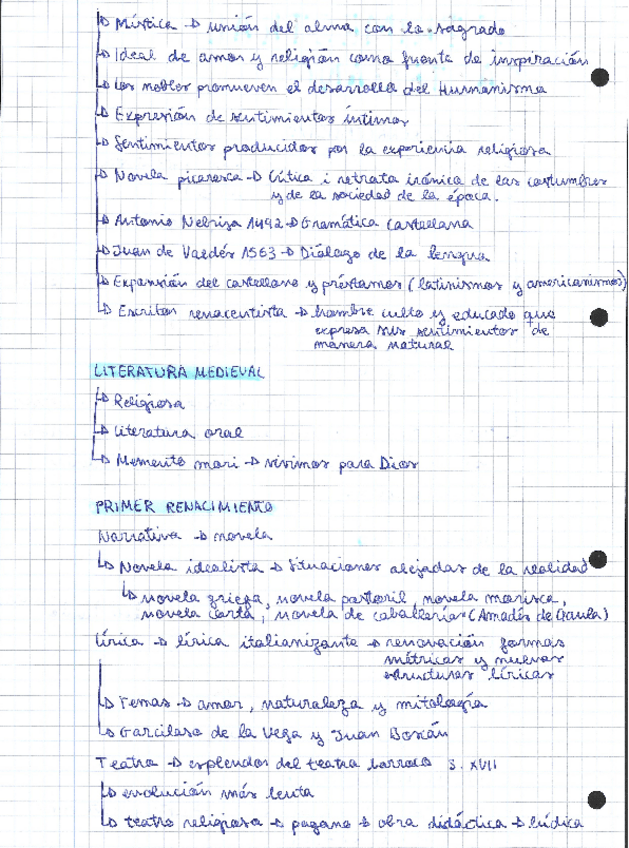 ↳ Mística → unión del alma con lo sagrado
↳ Ideal de amor y religión como fuente de inspiración
↳ Los nobles promueven el desarrollo del Humanismo
↳ Expresión de sentimientos íntimos
↳ Sentimientos producidos por la experiencia religiosa
↳ Novela picaresca → Crítica i retrato irónico de las costumbres
y de la sociedad de la época.
↳ Antonio Nebrija 1492 → Gramática Castellana
↳ Juan de Valdés 1563 → Diálogo de la lengua
↳ Expansión del castellano y préstamos (latinismos y americanismos)
↳ Escritor renacentista → hombre culto y educado que
expresa sus sentimientos de
manera natural
LITERATURA MEDIEVAL
↳ Religiosa
↳ Literatura oral
↳ Memento mori → vivimos para Dios
PRIMER RENACIMIENTO
Narrativa → novela
↳ Novela idealista → situaciones alejadas de la realidad
↳ novela griega, novela pastoril, novela morisca,
novela corta, novela de caballerías (Amadís de Gaula)
Lírica → lírica italianizante → renovación formas
métricas y nuevas
estructuras líricas
↳ Temas → amor, naturaleza y mitología
↳ Garcilaso de la Vega y Juan Boscán
Teatro → esplendor del teatro barroco S. XVII
↳ evolución más lenta
↳ teatro religioso → pagano → obra didáctica → lúdica